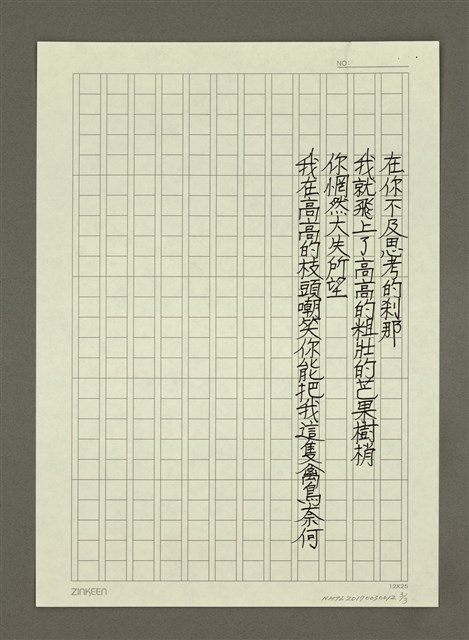 NO:
在你不及思考的剎那
我就飛上了高高的粗壯的芒果樹梢
你惘然大失所望
我在高高的枝頭嘲笑你能把我這隻禽鳥奈何
ZINKEEN
12X25
NMTL20170030012 3/3